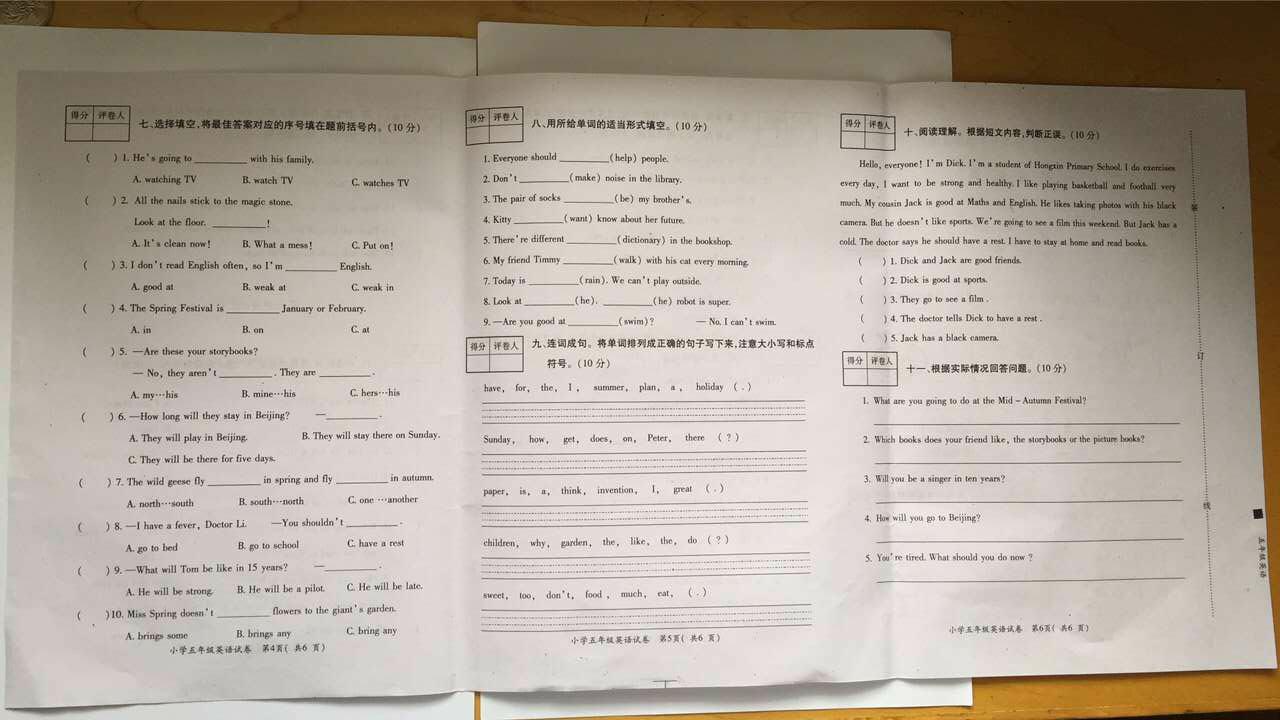 得分 评卷人
七、选择填空，将最佳答案对应的序号填在题前括号内。（10 分）
(   ) 1. He's going to __________ with his family.
A. watching TV B. watch TV C. watches TV
(   ) 2. All the nails stick to the magic stone.
Look at the floor. __________!
A. It's clean now! B. What a mess! C. Put on!
(   ) 3. I don't read English often, so I'm __________ English.
A. good at B. weak at C. weak in
(   ) 4. The Spring Festival is __________ January or February.
A. in B. on C. at
(   ) 5. —Are these your storybooks?
— No, they aren't __________. They are __________.
A. my…his B. mine…his C. hers…his
(   ) 6. —How long will they stay in Beijing? —__________.
A. They will play in Beijing. B. They will stay there on Sunday.
C. They will be there for five days.
(   ) 7. The wild geese fly __________ in spring and fly __________ in autumn.
A. north…south B. south…north C. one …another
(   ) 8. —I have a fever, Doctor Li. —You shouldn't __________.
A. go to bed B. go to school C. have a rest
(   ) 9. —What will Tom be like in 15 years? —__________.
A. He will be strong. B. He will be a pilot. C. He will be late.
(   )10. Miss Spring doesn't __________ flowers to the giant's garden.
A. brings some B. brings any C. bring any
小学五年级英语试卷 第4页( 共6 页)
得分 评卷人
八、用所给单词的适当形式填空。（10 分）
1. Everyone should __________(help) people.
2. Don't __________(make) noise in the library.
3. The pair of socks __________(be) my brother's.
4. Kitty __________(want) know about her future.
5. There're different __________(dictionary) in the bookshop.
6. My friend Timmy __________(walk) with his cat every morning.
7. Today is __________(rain). We can't play outside.
8. Look at __________(he). __________(he) robot is super.
9. —Are you good at __________(swim)? — No. I can't swim.
得分 评卷人
九、连词成句。将单词排列成正确的句子写下来，注意大小写和标点
符号。（10 分）
have, for, the, I, summer, plan, a, holiday （.）
Sunday, how, get, does, on, Peter, there （?）
paper, is, a, think, invention, I, great （.）
children, why, garden, the, like, the, do （?）
sweet, too, don't, food, much, eat, （.）
小学五年级英语试卷 第5页( 共6 页)
得分 评卷人
十、阅读理解。根据短文内容，判断正误。（10 分）
Hello, everyone! I'm Dick. I'm a student of Hongxin Primary School. I do exercises
every day, I want to be strong and healthy. I like playing basketball and football very
much. My cousin Jack is good at Maths and English. He likes taking photos with his black
camera. But he doesn't like sports. We're going to see a film this weekend. But Jack has a
cold. The doctor says he should have a rest. I have to stay at home and read books.
(   ) 1. Dick and Jack are good friends.
(   ) 2. Dick is good at sports.
(   ) 3. They go to see a film .
(   ) 4. The doctor tells Dick to have a rest .
(   ) 5. Jack has a black camera.
得分 评卷人
十一、根据实际情况回答问题。（10 分）
1. What are you going to do at the Mid - Autumn Festival?
2. Which books does your friend like, the storybooks or the picture books?
3. Will you be a singer in ten years?
4. How will you go to Beijing?
5. You're tired. What should you do now ?
小学五年级英语试卷 第6页( 共6 页)
装
订
线
五年级英语